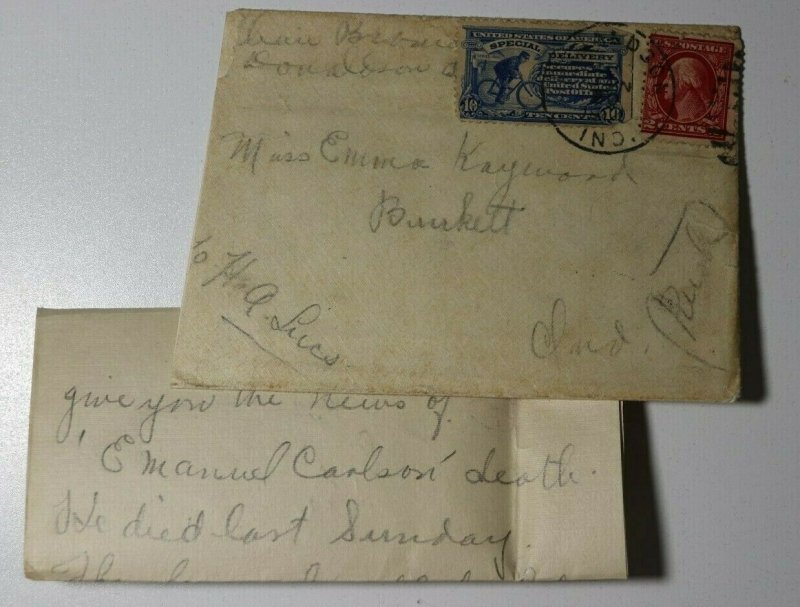 Donaldson
UNITED STATES OF AMERICA
SPECIAL DELIVERY
Secures immediate delivery at any United States Post Office
10 TEN CENTS 10
U.S. POSTAGE
2 CENTS 2
IND.
Miss Emma Kaywood
Burkett
℅ H. A. Lucs
Ind.
Rush
give you the news of
Emanuel Carlson' death.
He died last Sunday.